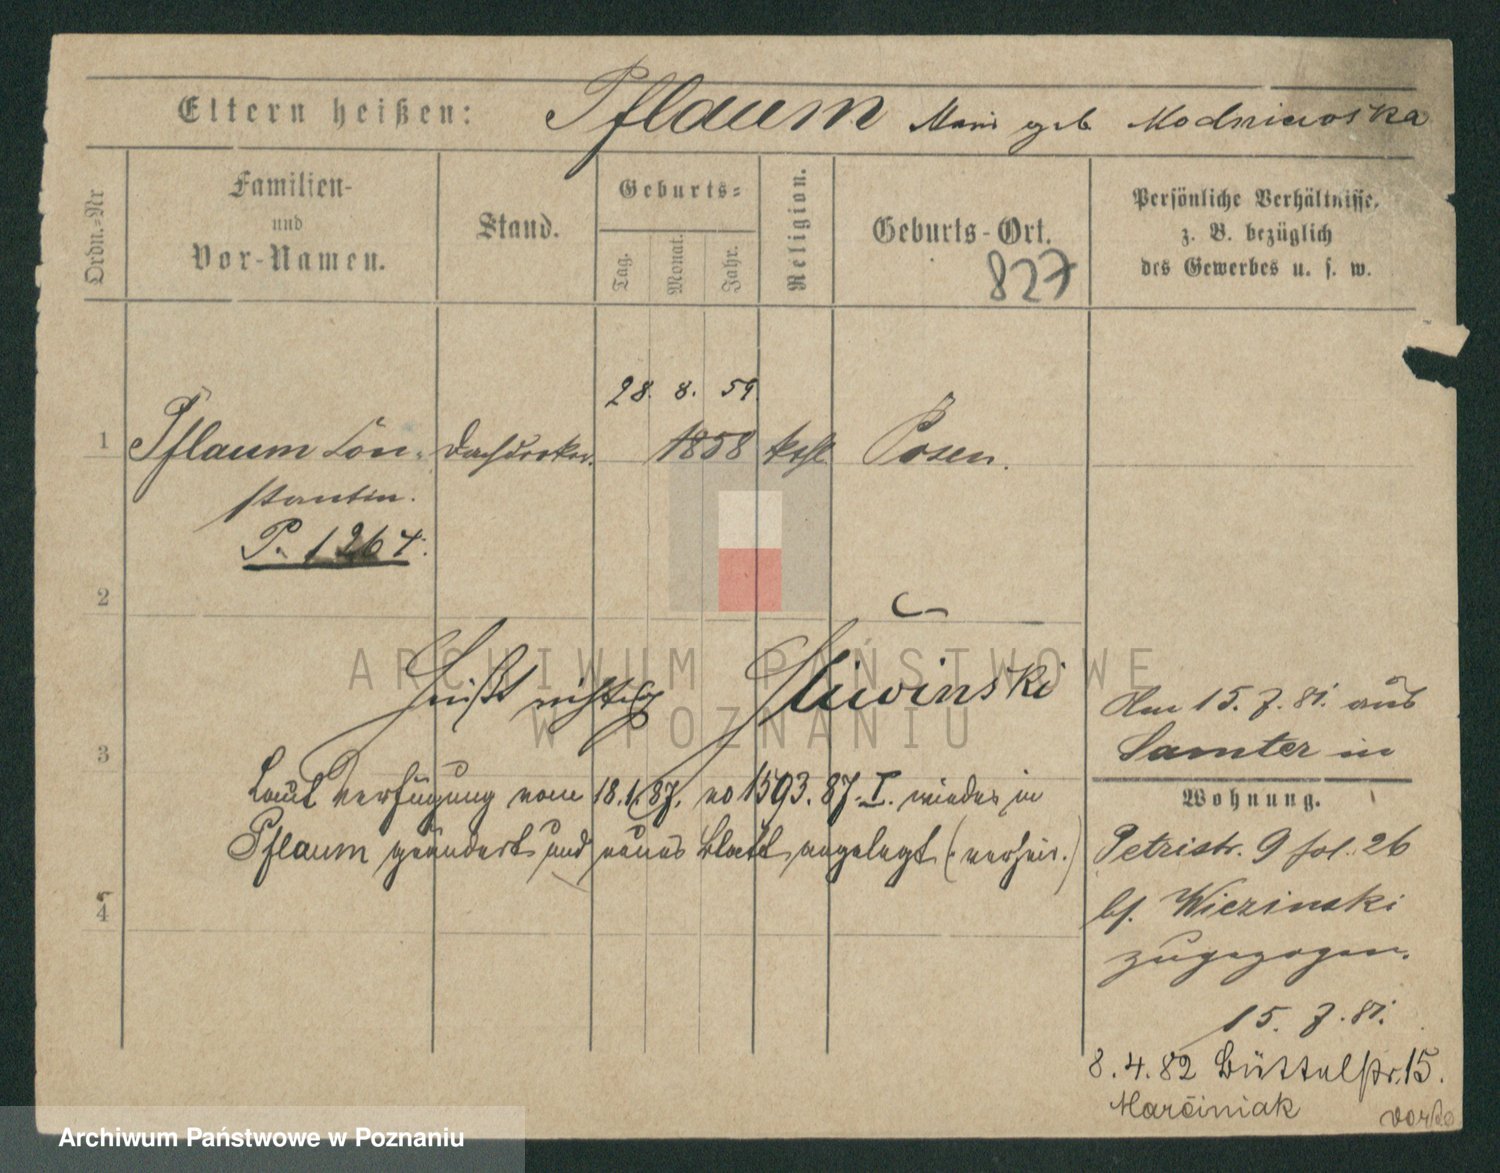 Eltern heißen: Pflaum Marie geb Modniewska
Ordn.-Nr
Familien-
und
Vor-Namen.
Stand.
Geburts-
Tag.
Monat.
Jahr.
Religion.
Geburts-Ort.
827
Persönliche Verhältnisse,
z. B. bezüglich
des Gewerbes u. s. w.
28. 8. 59.
1 Pflaum Con- Dachdecker. 1858 kath Posen.
stantin.
P. 1264.
2
Heißt richtig Sliwinski
3
Laut Verfügung vom 18.1.87. no 1593.87.I. wieder in
Pflaum geändert und neues Blatt angelegt (verheir.)
4
Am 15.7.81. aus
Samter in
Wohnung.
Petristr. 9 fol. 26
bf. Wiezinski
zugezogen.
15.7.81.
8.4.82 Büttelstr. 15.
Marciniak
ARCHIWUM PAŃSTWOWE
W POZNANIU
Archiwum Państwowe w Poznaniu